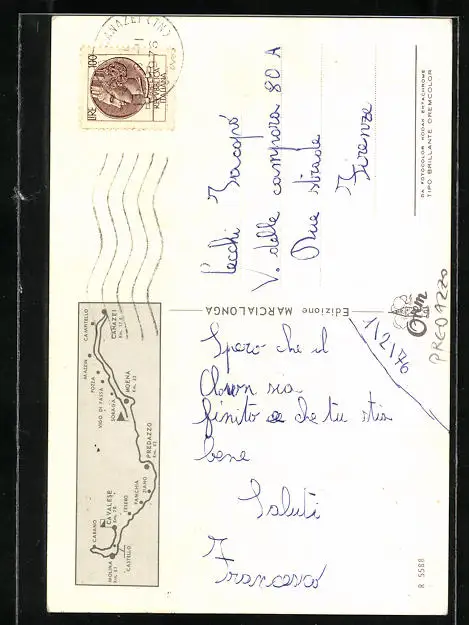 CANAZEI (TN)
LIRE 100
REPUBBLICA
ITALIANA
DA FOTOCOLOR KODAK EKTACHROME
TIPO BRILLANTE OREMCOLOR
Cecchi Jacopó
V. delle campora 80 A
Due strade
Firenze
Edizione MARCIALONGA
Orem
PRE01220
1/2/76
Spero che il
Clown sia
finito e che tu stia
bene
Saluti
Francesco
CAMPITELLO
CANAZEI
MAZZIN
POZZA
VIGO DI FASSA
SORAGA
MOENA
PREDAZZO
ZIANO
PANCHIA
TESERO
CAVALESE
CARANO
CASTELLO
MOLINA
R 5588